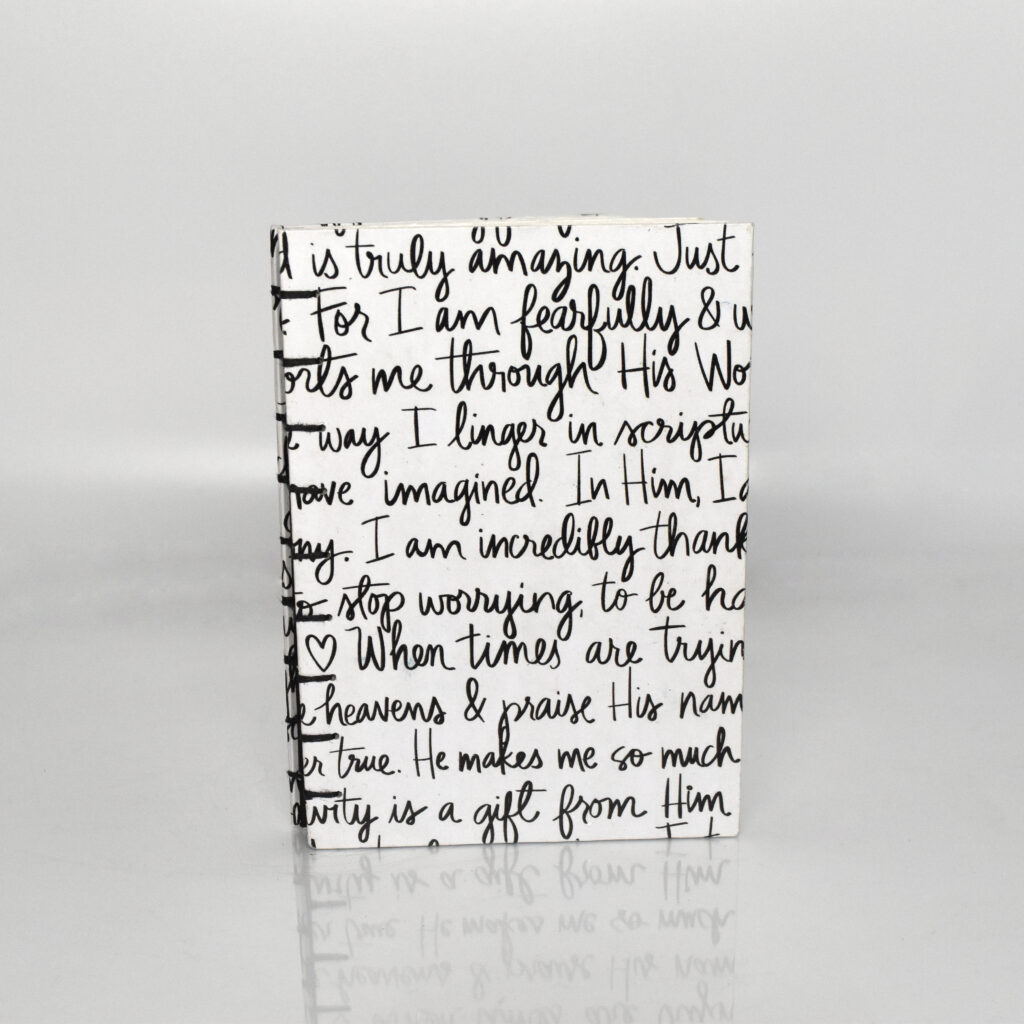 is truly amazing. Just
For I am fearfully & w
orts me through His Wo
way I linger in scriptu
have imagined. In Him, I
ny. I am incredibly thank
to stop worrying, to be ha
♡ When times are tryin
e heavens & praise His nam
er true. He makes me so much
ivity is a gift from Him